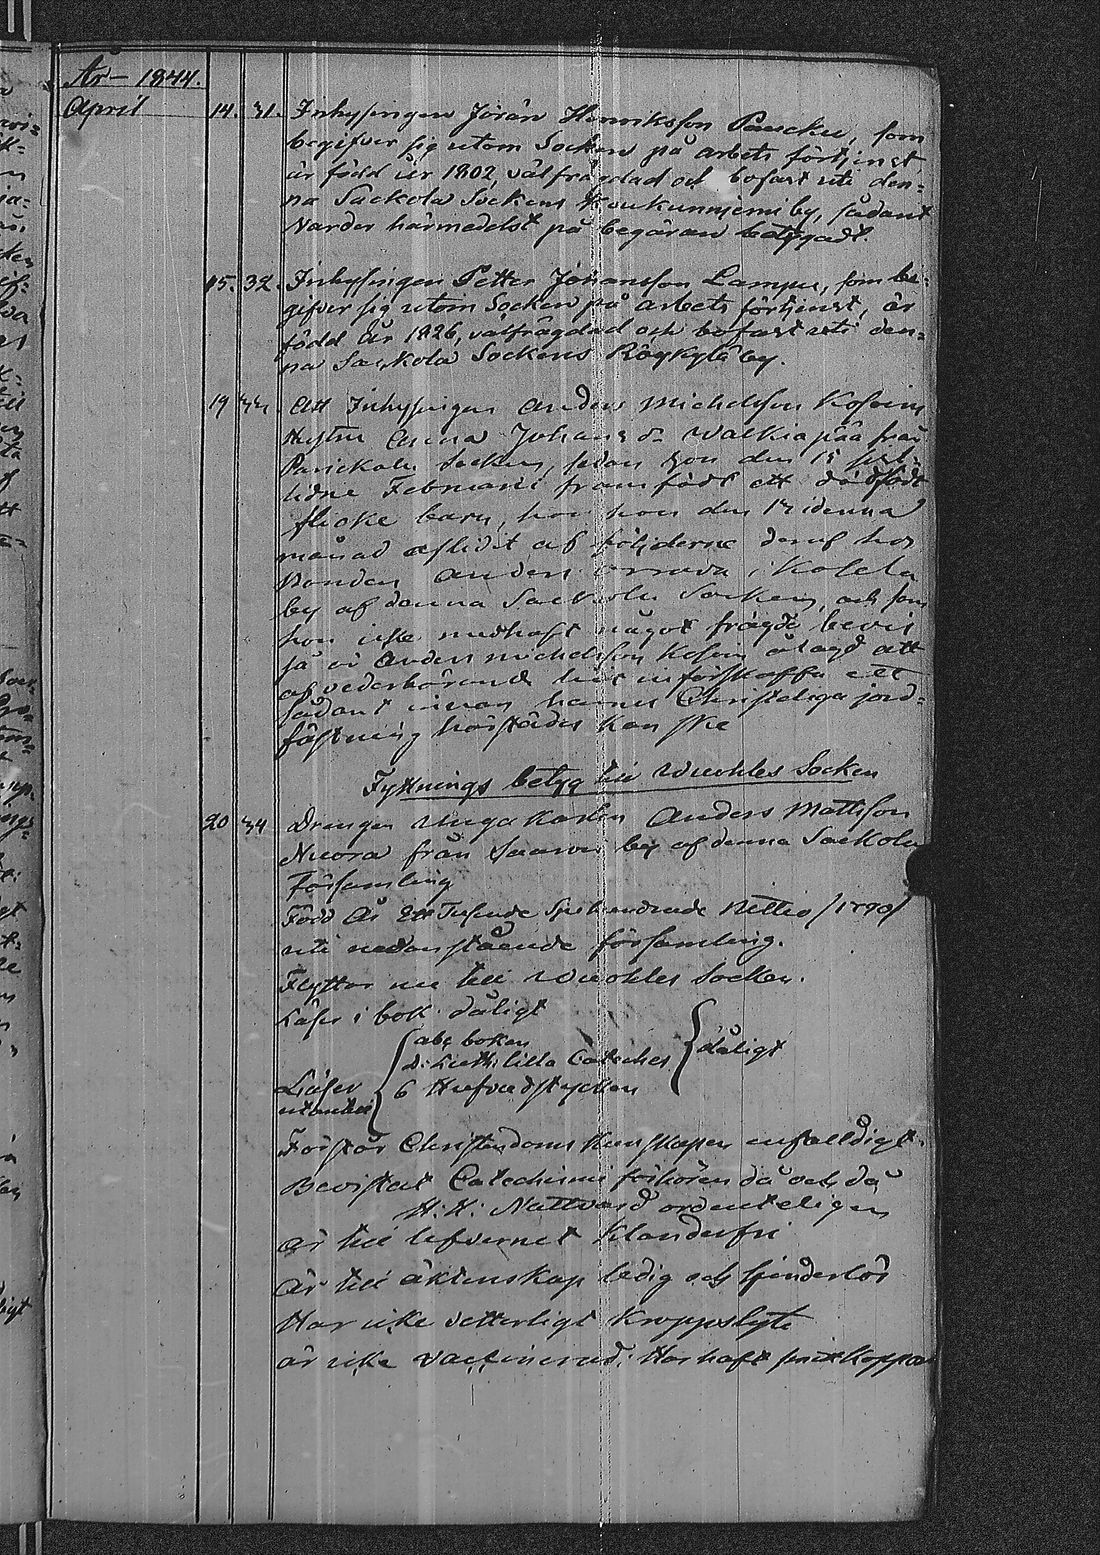 År 1844.
April 14. 31. Inhysingen Jöran Henriksson Paucku, som
begifver sig utom Socken på arbets förtjenst,
är född år 1802, välfrägdad och bofast uti den=
na Sackola Sockens Koukunniemi by, sådant
varder härmedelst på begäran betygadt.
15. 32. Inhysingen Petter Johansson Lampu, som be=
gifver sig utom Socken på arbets förtjenst, är
född År 1826, välfrägdad och bofast uti den=
na Sackola Sockens Röykylä by.
19 Att Inhysingen Anders Michelsson Kosoin
Hustru Anna Johans dr Walkiapää från
Parickala Socken, sedan hon den 15
lidne Februarii framfödt ett dödfödt
flicke barn, hon den 17 i denna
månad aflidit af följderne deraf hos
Bonden Anders i Kosela
by af denna Sackola Socken, och som
hon icke medhaft något frägde bevis
så är Anders Michelsson ålagd att
af vederbörande införskaffa ett
sådant innan hennes Christeliga jord=
fästning härstädes kan ske
Flyttnings betyg till Wuoles Socken
20 34 Drengen Unga Karlen Anders Mattsson
Nuora från by af denna Sackola
Församling
Född År Ett Tusende Sju hundrade Nittio /1790/
uti nedanstående församling.
Flyttar nu till Wuoles Socken.
Läser i bok dåligt
Läser utantill { abc boken
D: Luth: lilla Cateches
6 Hufvudstycken } dåligt
Förstår Christendoms kunskapen enfalldigt.
Bevistat Catechismi förhören då och då
H. H. Nattvard ordenteligen
är till lefvernet klanderfri
är till äktenskap ledig och hinderlös
Har icke vetterligt kroppslyte
är icke vaccinerad. Har haft koppor